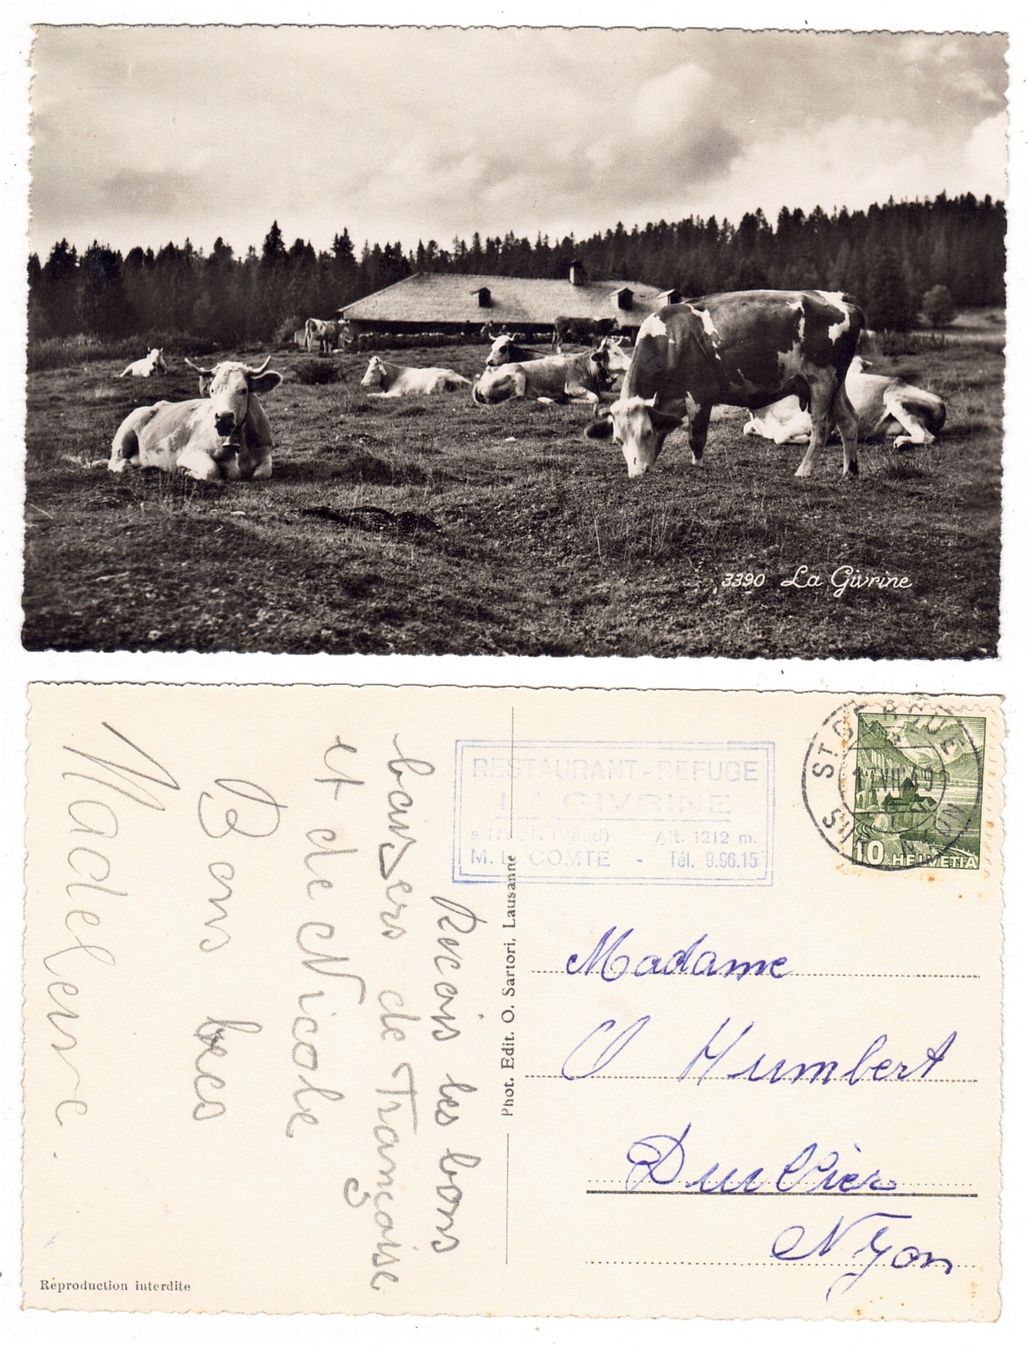 3390 La Givrine
RESTAURANT - REFUGE
LA GIVRINE
s/NYON (Vaud) Alt. 1212 m.
M. L. COMTE - Tél. 9.96.15
ST. CERGUE
SUR NYON
10 HELVETIA
Recois les bons
baisers de Françoise
et de Nicole
Bons becs
Madeleine.
Phot. Edit. O. Sartori, Lausanne
Madame
O Humbert
Duillier
Nyon
Reproduction interdite